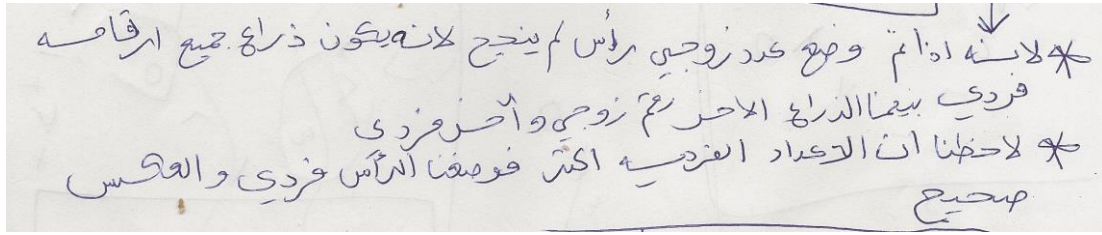 * لانه اذا تم وضع عدد زوجي رأس لم ينجح لانه يكون ذراع جميع ارقامه
فردي بينما الذراع الاخر رقم زوجي وآخر فردي
* لاحظنا ان الاعداد الفرديه اكثر فوضعنا الرأس فردي والعكس
صحيح